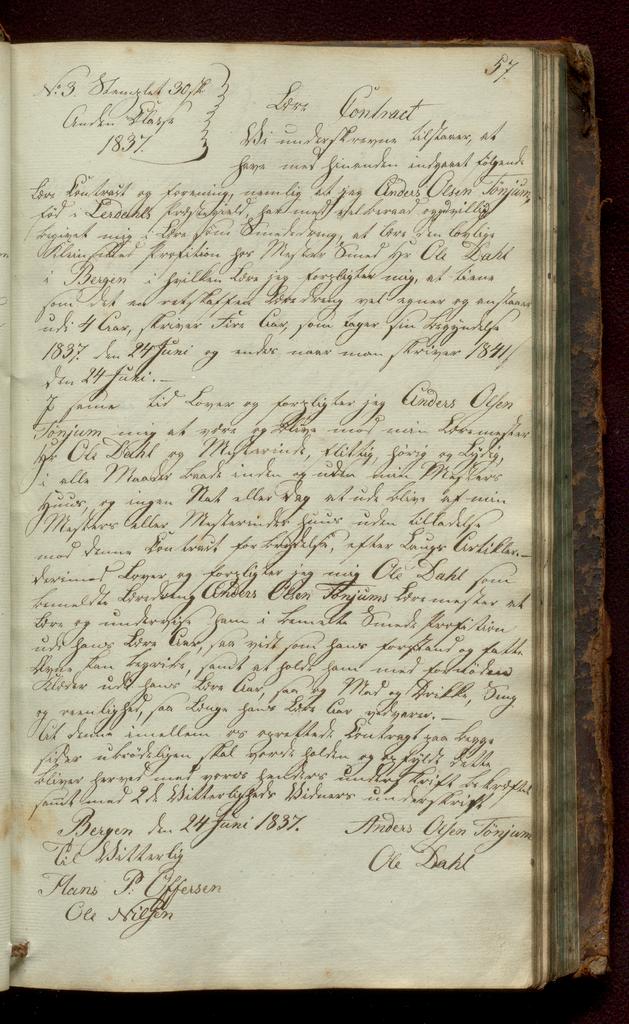 57.
No: 3 Stemplet 30 sk
Anden Classe
1837.
Lære Contract
Vi underskrevne tilstaaer, at
have med hinanden indgaaet følgende
Lære Contract og forening, nemlig at jeg Anders Olsen Tønjum
fød i Lerdahls Præstegield, har med velberaad og godvillig
begivet mig i Lære som Smededreng, at lære den lovlige
Kleinsmed Profition hos Mester Smed Hr Ole Dahl
i Bergen i hvilken Lære jeg forpligter mig, at tiene
som det en retskaffen Læredreng vel egner og anstaaer
udi 4 Aar, skriver Fire Aar, som tager sin begyndelse
1837 den 24 Juni og endes naar man skriver 1841
den 24 Juni. —
I samme tid Lover og forpligter jeg Anders Olsen
Tønjum meg at være og blive mod min Læremester
Hr Ole Dahl og Mesterinde, flittig, hørig og Lydig,
i alle Maader baade inden og uden min Mesters
Huus, og ingen Nat eller Dag at ude blive af min
Mesters eller Mesterindes Huus uden tilladelse
mod denne Contract forbrydelse, efter Laugs Artikler. —
Derimod Lover og forpligter jeg mig Ole Dahl som
bemeldte Læredreng Anders Olsen Tønjums Læremester at
lære og underviise ham i bemelte Smede Profition
udi hans Lære Aar, saa vidt som hans forstand og fatte
Evne kan begribe, samt at holde ham med fornøden
Klæder udi hans Lære Aar, saa og Mad og Drikke, Seng
og reenlighed, saa Længe hans Lære Aar vedvarer. —
At denne imellem os oprettede Contragt paa begge
sider ubrødeligen skal vorde holden og opfyldt dette
bliver herved med vores hænders underskrift bekræftet
samt med 2de Vitterligheds Vidners underskrift
Bergen den 24 Juni 1837. Anders Olsen Tønjum
Til Vitterlig Ole Dahl
Hans P: Offersen
Ole Nilsen